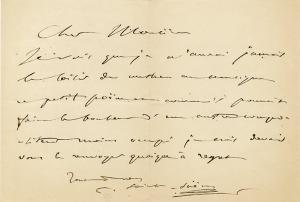 Cher Monsieur
Je vois que je n'aurai jamais
le loisir de mettre en musique
ce petit poème
faire le bonheur d'un autre compo-
siteur moins occupé je crois devoir
vous le renvoyer quoique à regret
C. Saint-Saëns